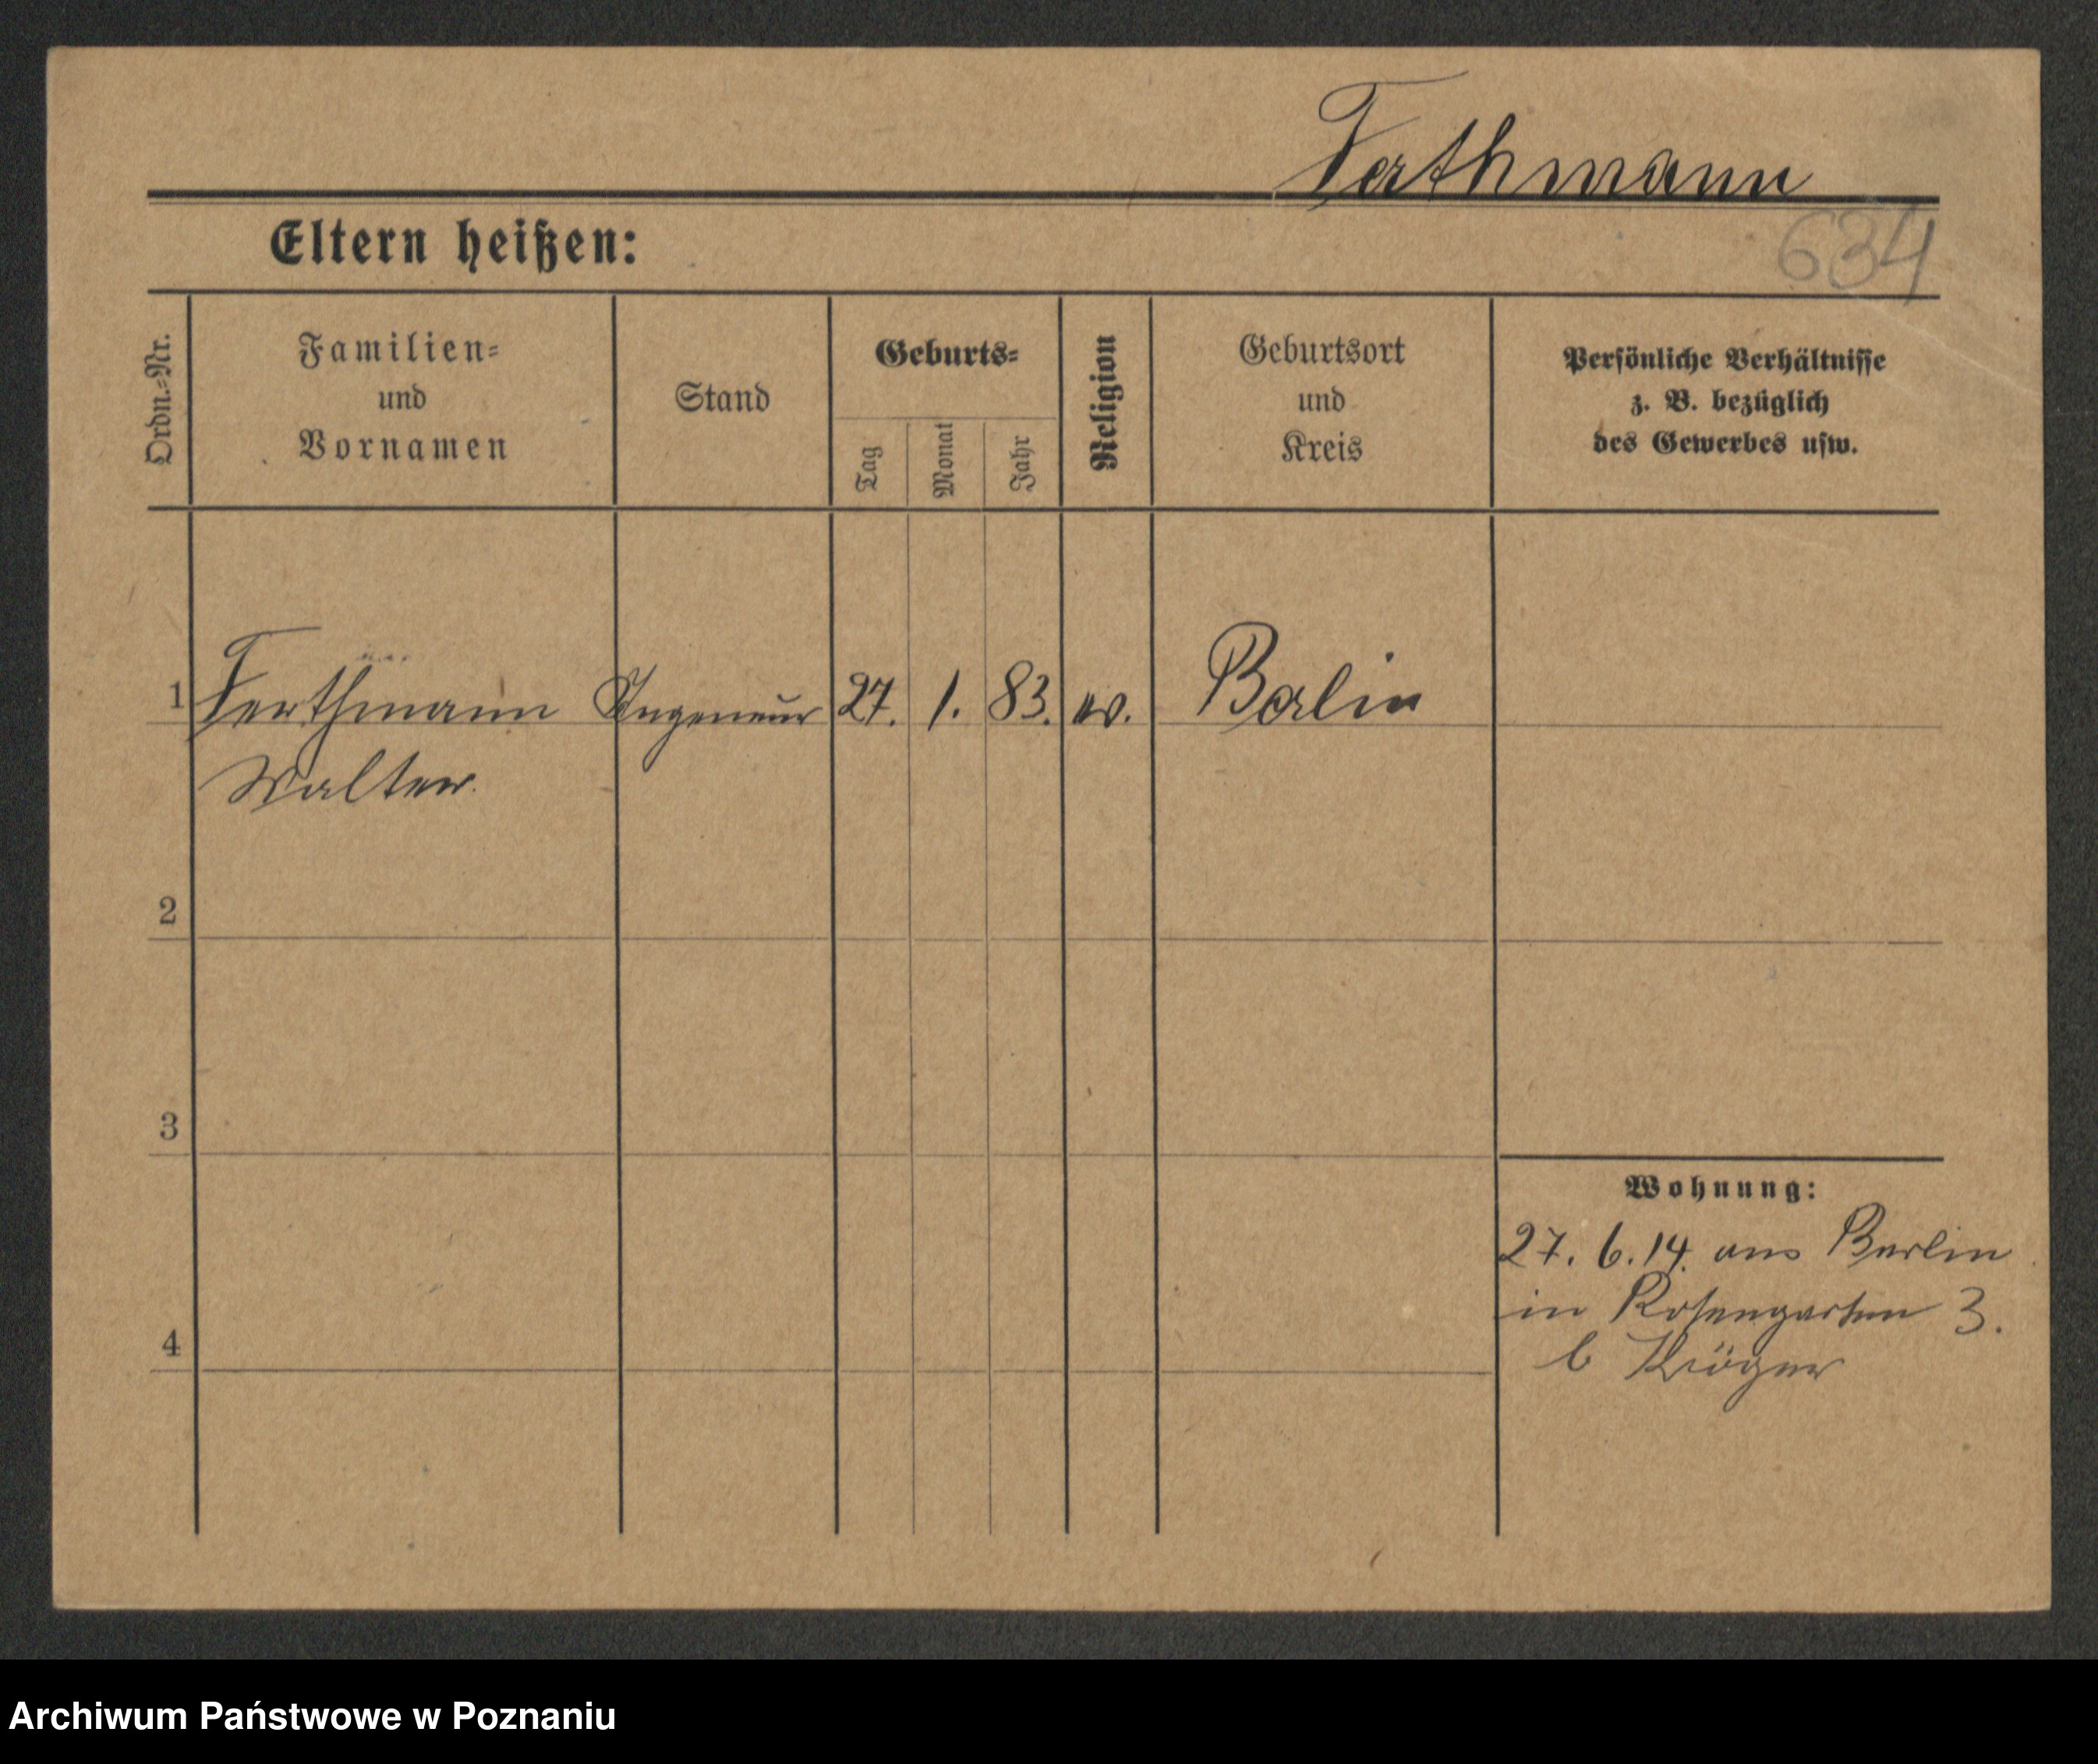 Ferthmann
634
Eltern heißen:
Ordn.-Nr.
Familien-
und
Vornamen
Stand
Geburts-
Tag
Monat
Jahr
Religion
Geburtsort
und
Kreis
Persönliche Verhältnisse
z. B. bezüglich
des Gewerbes usw.
1 Ferthmann Ingeneur 27. 1. 83. ev. Berlin
Walter.
2
3
Wohnung:
27. 6. 14. aus Berlin
in Rosengarten 3.
4
b Kröger
Archiwum Państwowe w Poznaniu